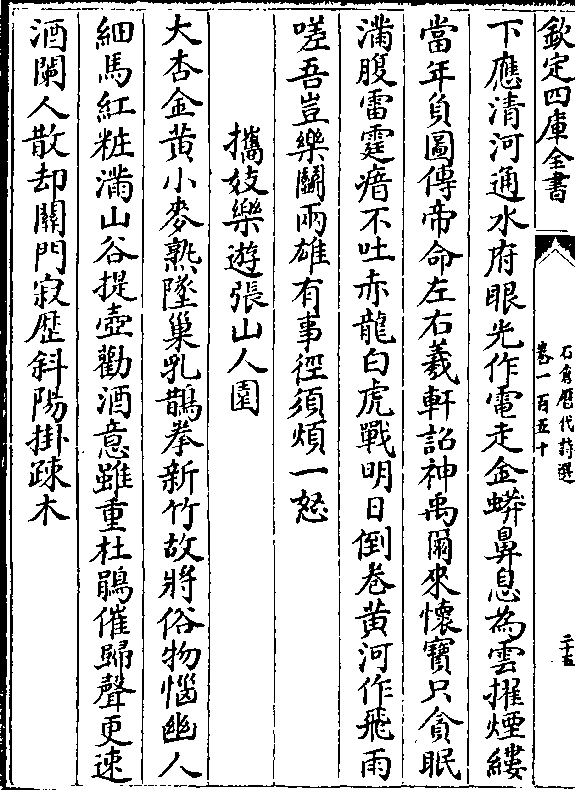 欽定四庫全書
石倉歷代詩選
卷一百五十
二十五
下應清河通水府眼光作電走金蟒鼻息為雲擢煙縷
當年負圖傳帝命左右羲軒詔神禹爾來懷寶只貪眠
滿腹雷霆瘖不吐赤龍白虎戰明日倒卷黃河作飛雨
嗟吾豈樂鬭兩雄有事徑須煩一怒
攜妓樂遊張山人園
大杏金黃小麥熟墜巢乳鵲拳新竹故將俗物惱幽人
細馬紅粧滿山谷提壺勸酒意雖重杜鵑催歸聲更速
酒闌人散却關門寂歷斜陽掛疎木